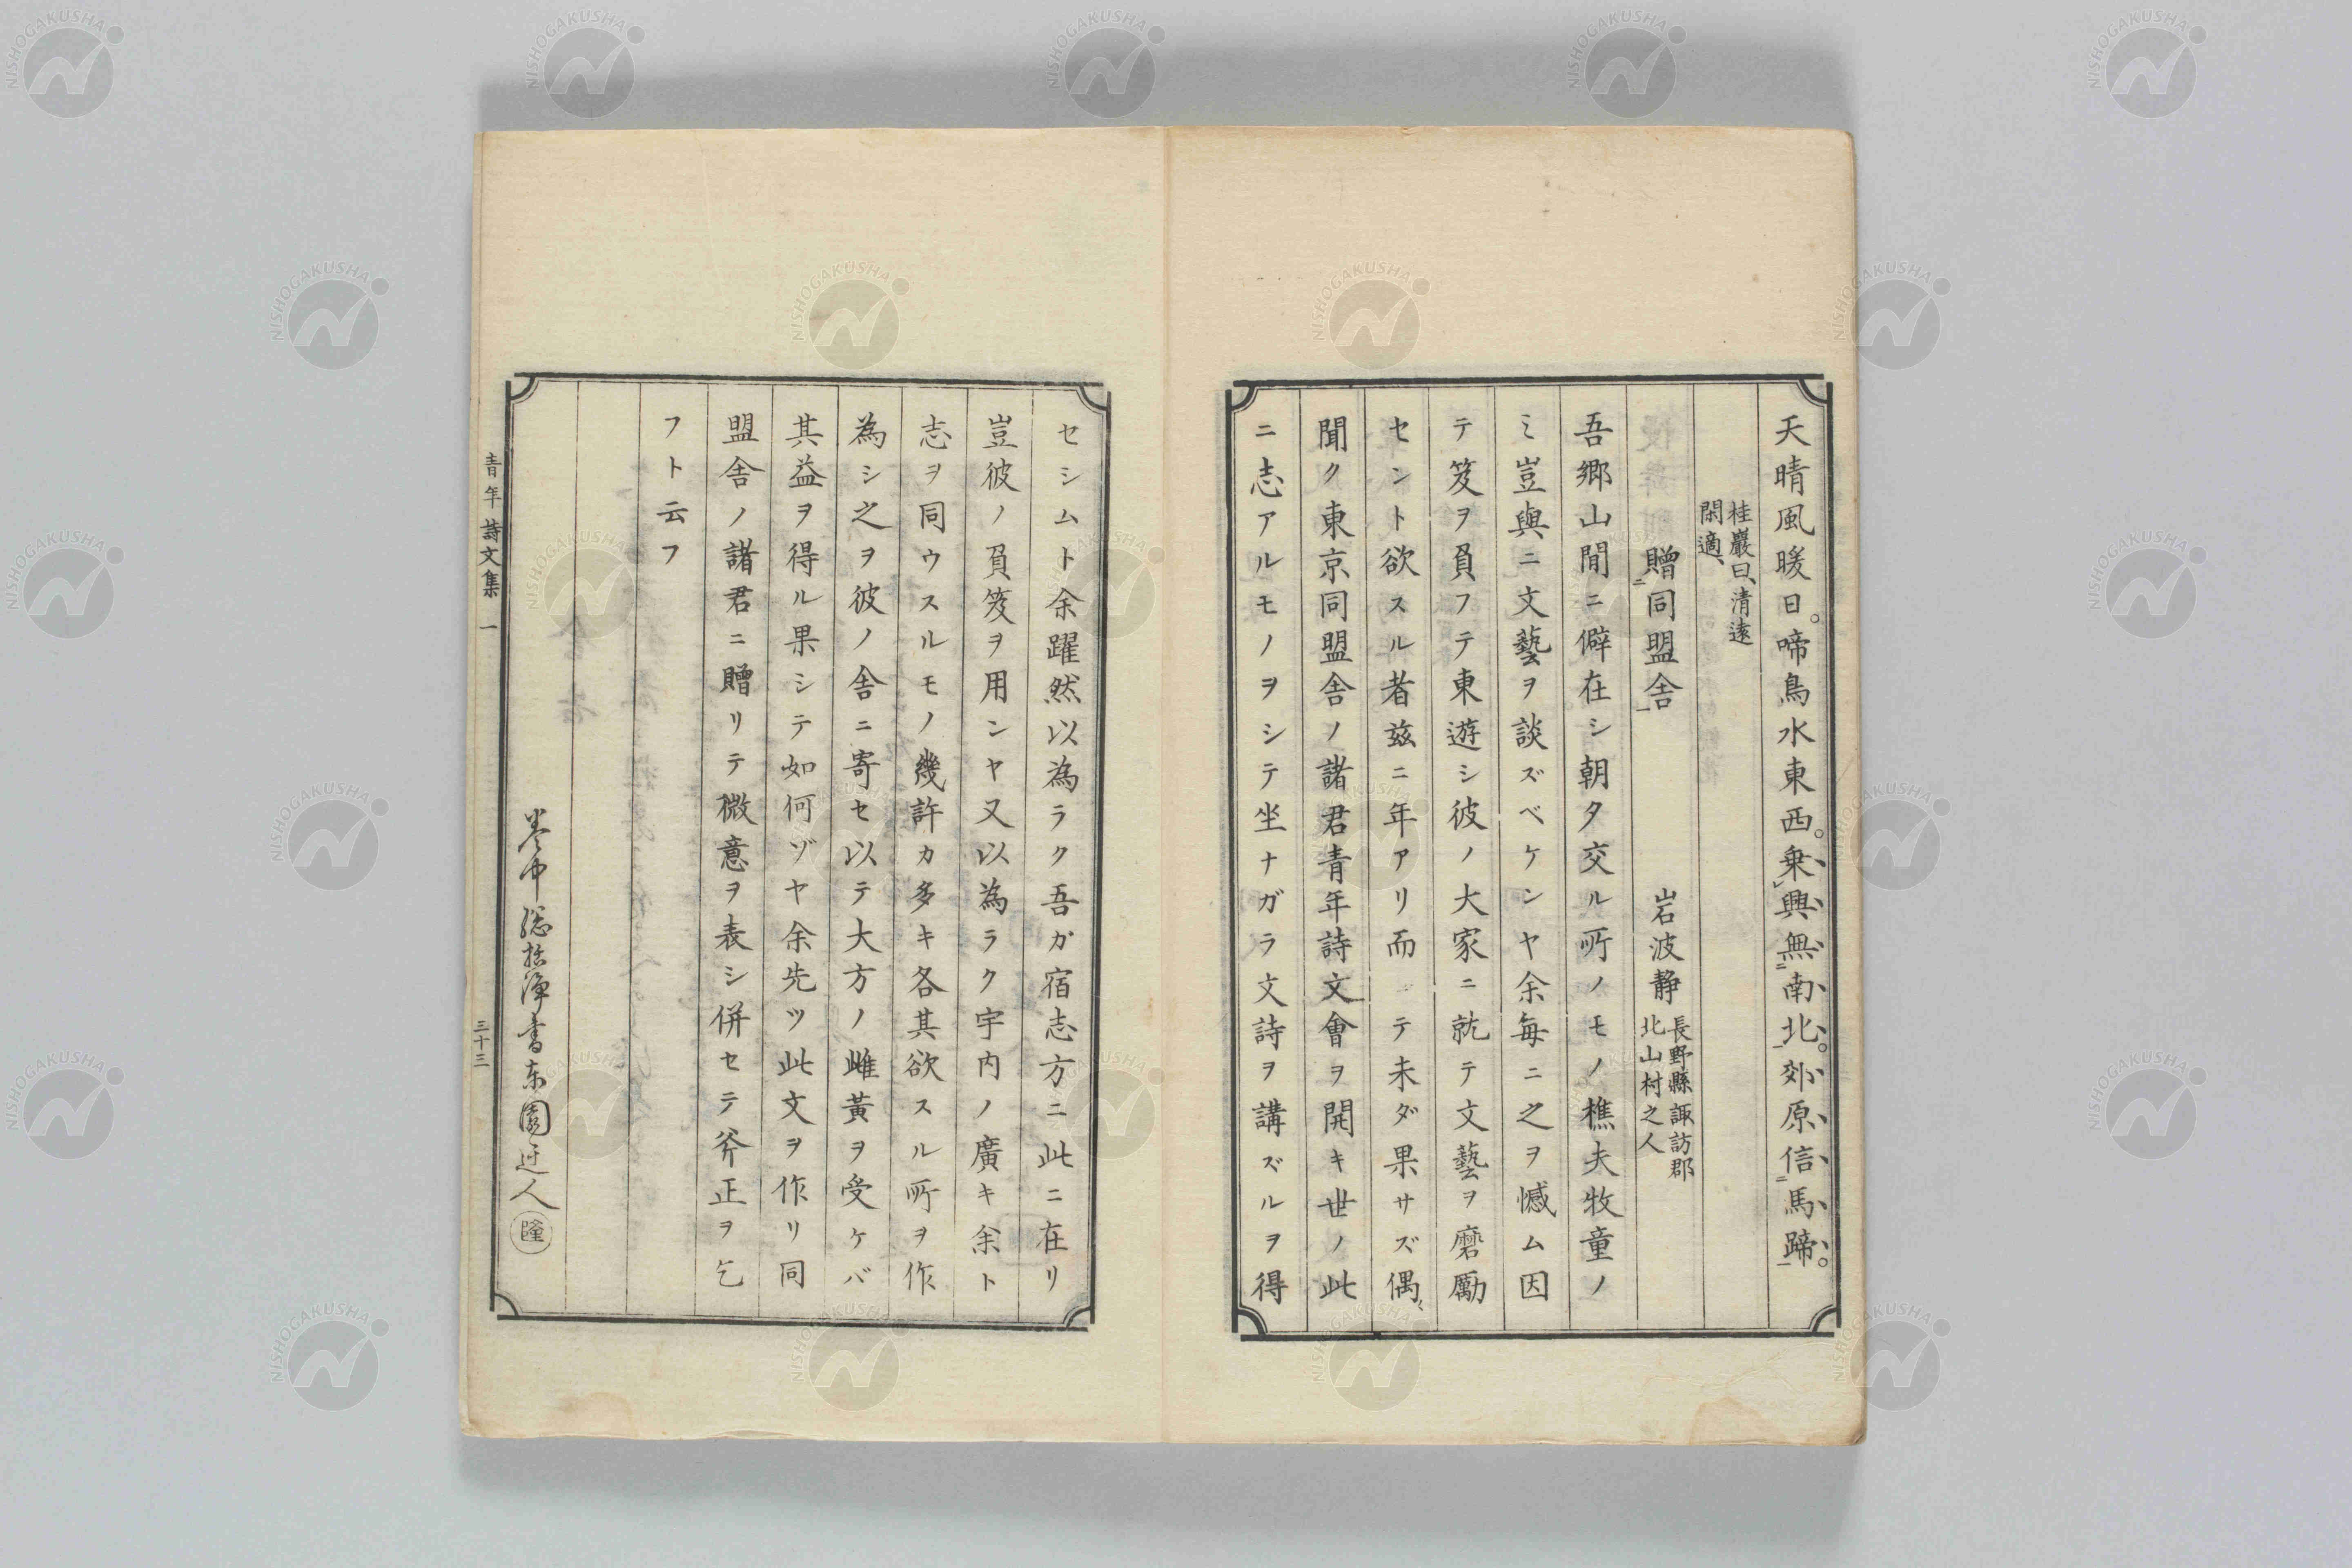 天晴風暖日。啼鳥水東西。乗レ興無二南北一。郊原信二馬蹄一。
桂巖曰、清遠
閑適、
贈二同盟舎一 岩波静 長野縣諏訪郡
北山村之人
吾郷山間ニ僻在シ朝夕交ル所ノモノ樵夫牧童ノ
ミ豈與ニ文藝ヲ談ズベケンヤ余毎ニ之ヲ憾ム因
テ笈ヲ負フテ東遊シ彼ノ大家ニ就テ文藝ヲ磨勵
セント欲スル者茲ニ年アリ而シテ未ダ果サズ偶〻
聞ク東京同盟舎ノ諸君青年詩文會ヲ開キ世ノ此
ニ志アルモノヲシテ坐ナガラ文詩ヲ講ズルヲ得
セシムト余躍然以為ラク吾ガ宿志方ニ此ニ在リ
豈彼ノ負笈ヲ用ンヤ又以為ラク宇内ノ廣キ余ト
志ヲ同ウスルモノ幾許カ多キ各其欲スル所ヲ作
為シ之ヲ彼ノ舎ニ寄セ以テ大方ノ雌黄ヲ受ケバ
其益ヲ得ル果シテ如何ゾヤ余先ツ此文ヲ作リ同
盟舎ノ諸君ニ贈リテ微意ヲ表シ併セテ斧正ヲ乞
フト云フ
巻中総括浄書東園迂人 隆
青年詩文集 一 三十三
NISHOGAKUSHA